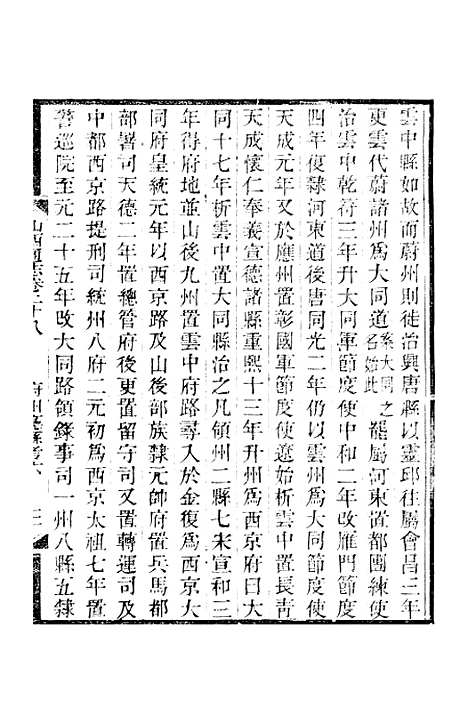 雲中縣如故而蔚州則徙治興唐縣以靈邱往屬會昌三年
更雲代蔚諸州為大同道案大同之名始此罷屬河東置都團練使
治雲中乾符三年升大同節度使中和二年改雁門節度
四年復隸河東道後唐同光二年仍以雲州為大同節度使
天成元年又於應州置彰國軍節度使遼始析雲中置長青
天成懷仁奉義宣德諸縣重熙十三年升州為西京府曰大
同十七年析雲中置大同縣治之凡領州二縣七宋宣和三
年得府地並山後九州置雲中府路尋入於金復為西京大
同府皇統元年以西京路及山後部族隸元帥府置兵馬都
部署司天德二年置總管府後更置留守司又置轉運司及
中都西京路提刑司統州八府二元初為西京太祖七年置
警巡院至元二十五年改大同路領錄事司一州八縣五隸
山西通志卷二十八 府州廳縣考六 三